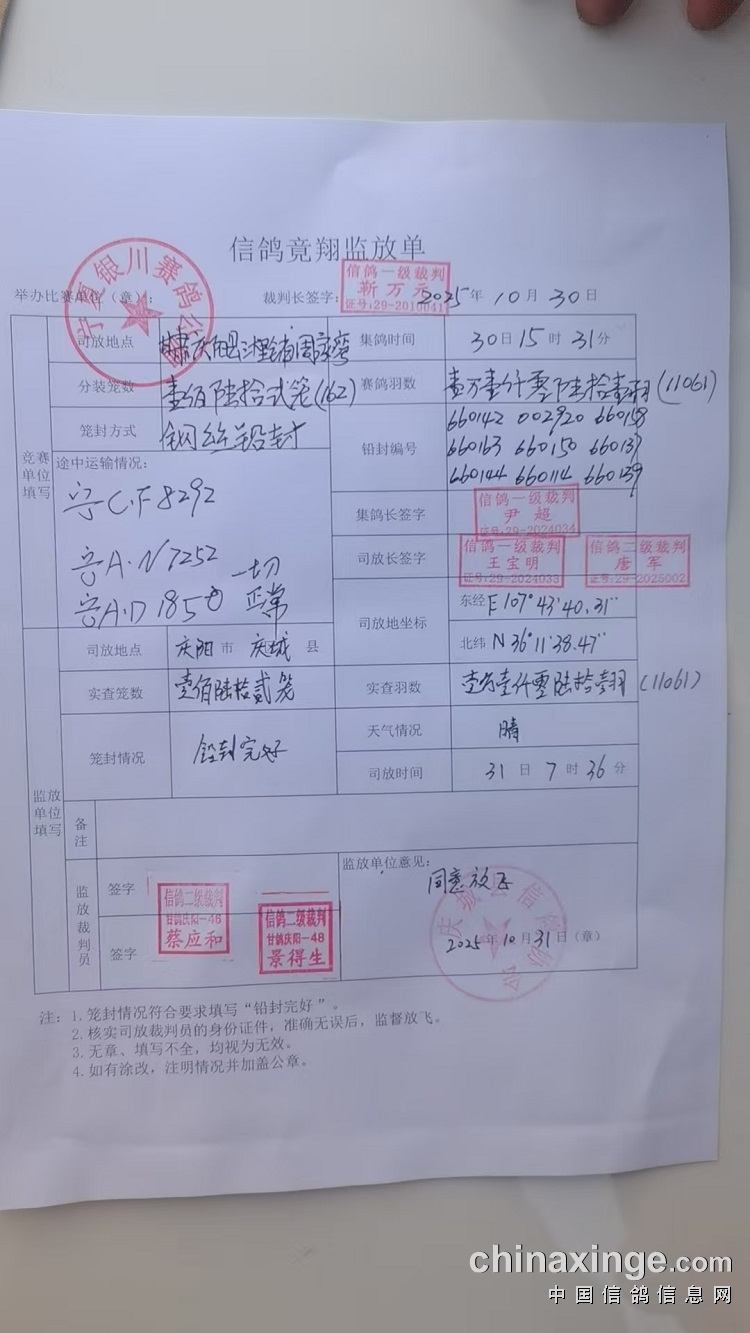 信鸽竞翔监放单
举办比赛单位（章）： 裁判长签字： 2025年10月30日
宁夏银川赛鸽公
信鸽一级裁判
靳万元
证号:29-2010041
司放地点 集鸽时间 30日15时31分
分装笼数 壹佰陆拾弍笼(162) 赛鸽羽数 壹万壹仟零陆拾壹羽(11061)
笼封方式 钢丝铅封 铅封编号 660142 002920 660158
660163 660150 660137
660144 660114 660139
竞赛单位填写
途中运输情况：
宁C.F8292
宁A.N7252 一切
宁A.D1850 正常
集鸽长签字 信鸽一级裁判
尹超
证号:29-2024034
司放长签字 信鸽一级裁判 信鸽二级裁判
王宝明 唐军
证号:29-2024033 证号:29-2025002
司放地坐标 东经E107°43'40.31''
北纬N36°11'38.47''
监放单位填写
司放地点 庆阳市 庆城县
实查笼数 壹佰陆拾贰笼 实查羽数 壹万壹仟零陆拾壹羽(11061)
笼封情况 铅封完好 天气情况 晴
司放时间 31日7时36分
备注
监放裁判员 签字 信鸽二级裁判
甘鸽庆阳-46
蔡应和
签字 信鸽二级裁判
甘鸽庆阳-48
景得生
监放单位意见：
同意放飞
2025年10月31日（章）
庆城县信鸽协会
注：1.笼封情况符合要求填写“铅封完好”。
2.核实司放裁判员的身份证件，准确无误后，监督放飞。
3.无章、填写不全，均视为无效。
4.如有涂改，注明情况并加盖公章。
chinaxinge.com
中国信鸽信息网